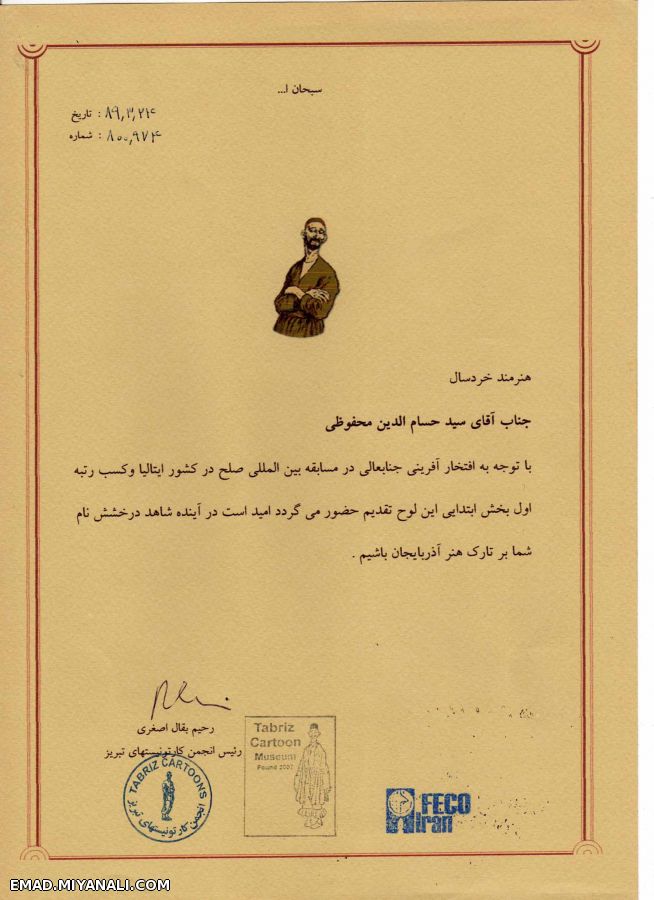 سبحان ا...
تاریخ : ۸۹,۳,۲۴
شماره : ۸۰۰,۹۷۴
هنرمند خردسال
جناب آقای سید حسام الدین محفوظی
با توجه به افتخار آفرینی جنابعالی در مسابقه بین المللی صلح در کشور ایتالیا وکسب رتبه
اول بخش ابتدایی این لوح تقدیم حضور می گردد امید است در آینده شاهد درخشش نام
شما بر تارک هنر آذربایجان باشیم .
رحیم بقال اصغری
رئیس انجمن کارتونیستهای تبریز
TABRIZ CARTOONS
انجمن کارتونیستهای تبریز
Tabriz
Cartoon
Museum
Found 2007
FECO
Iran
EMAD.MIYANALI.COM